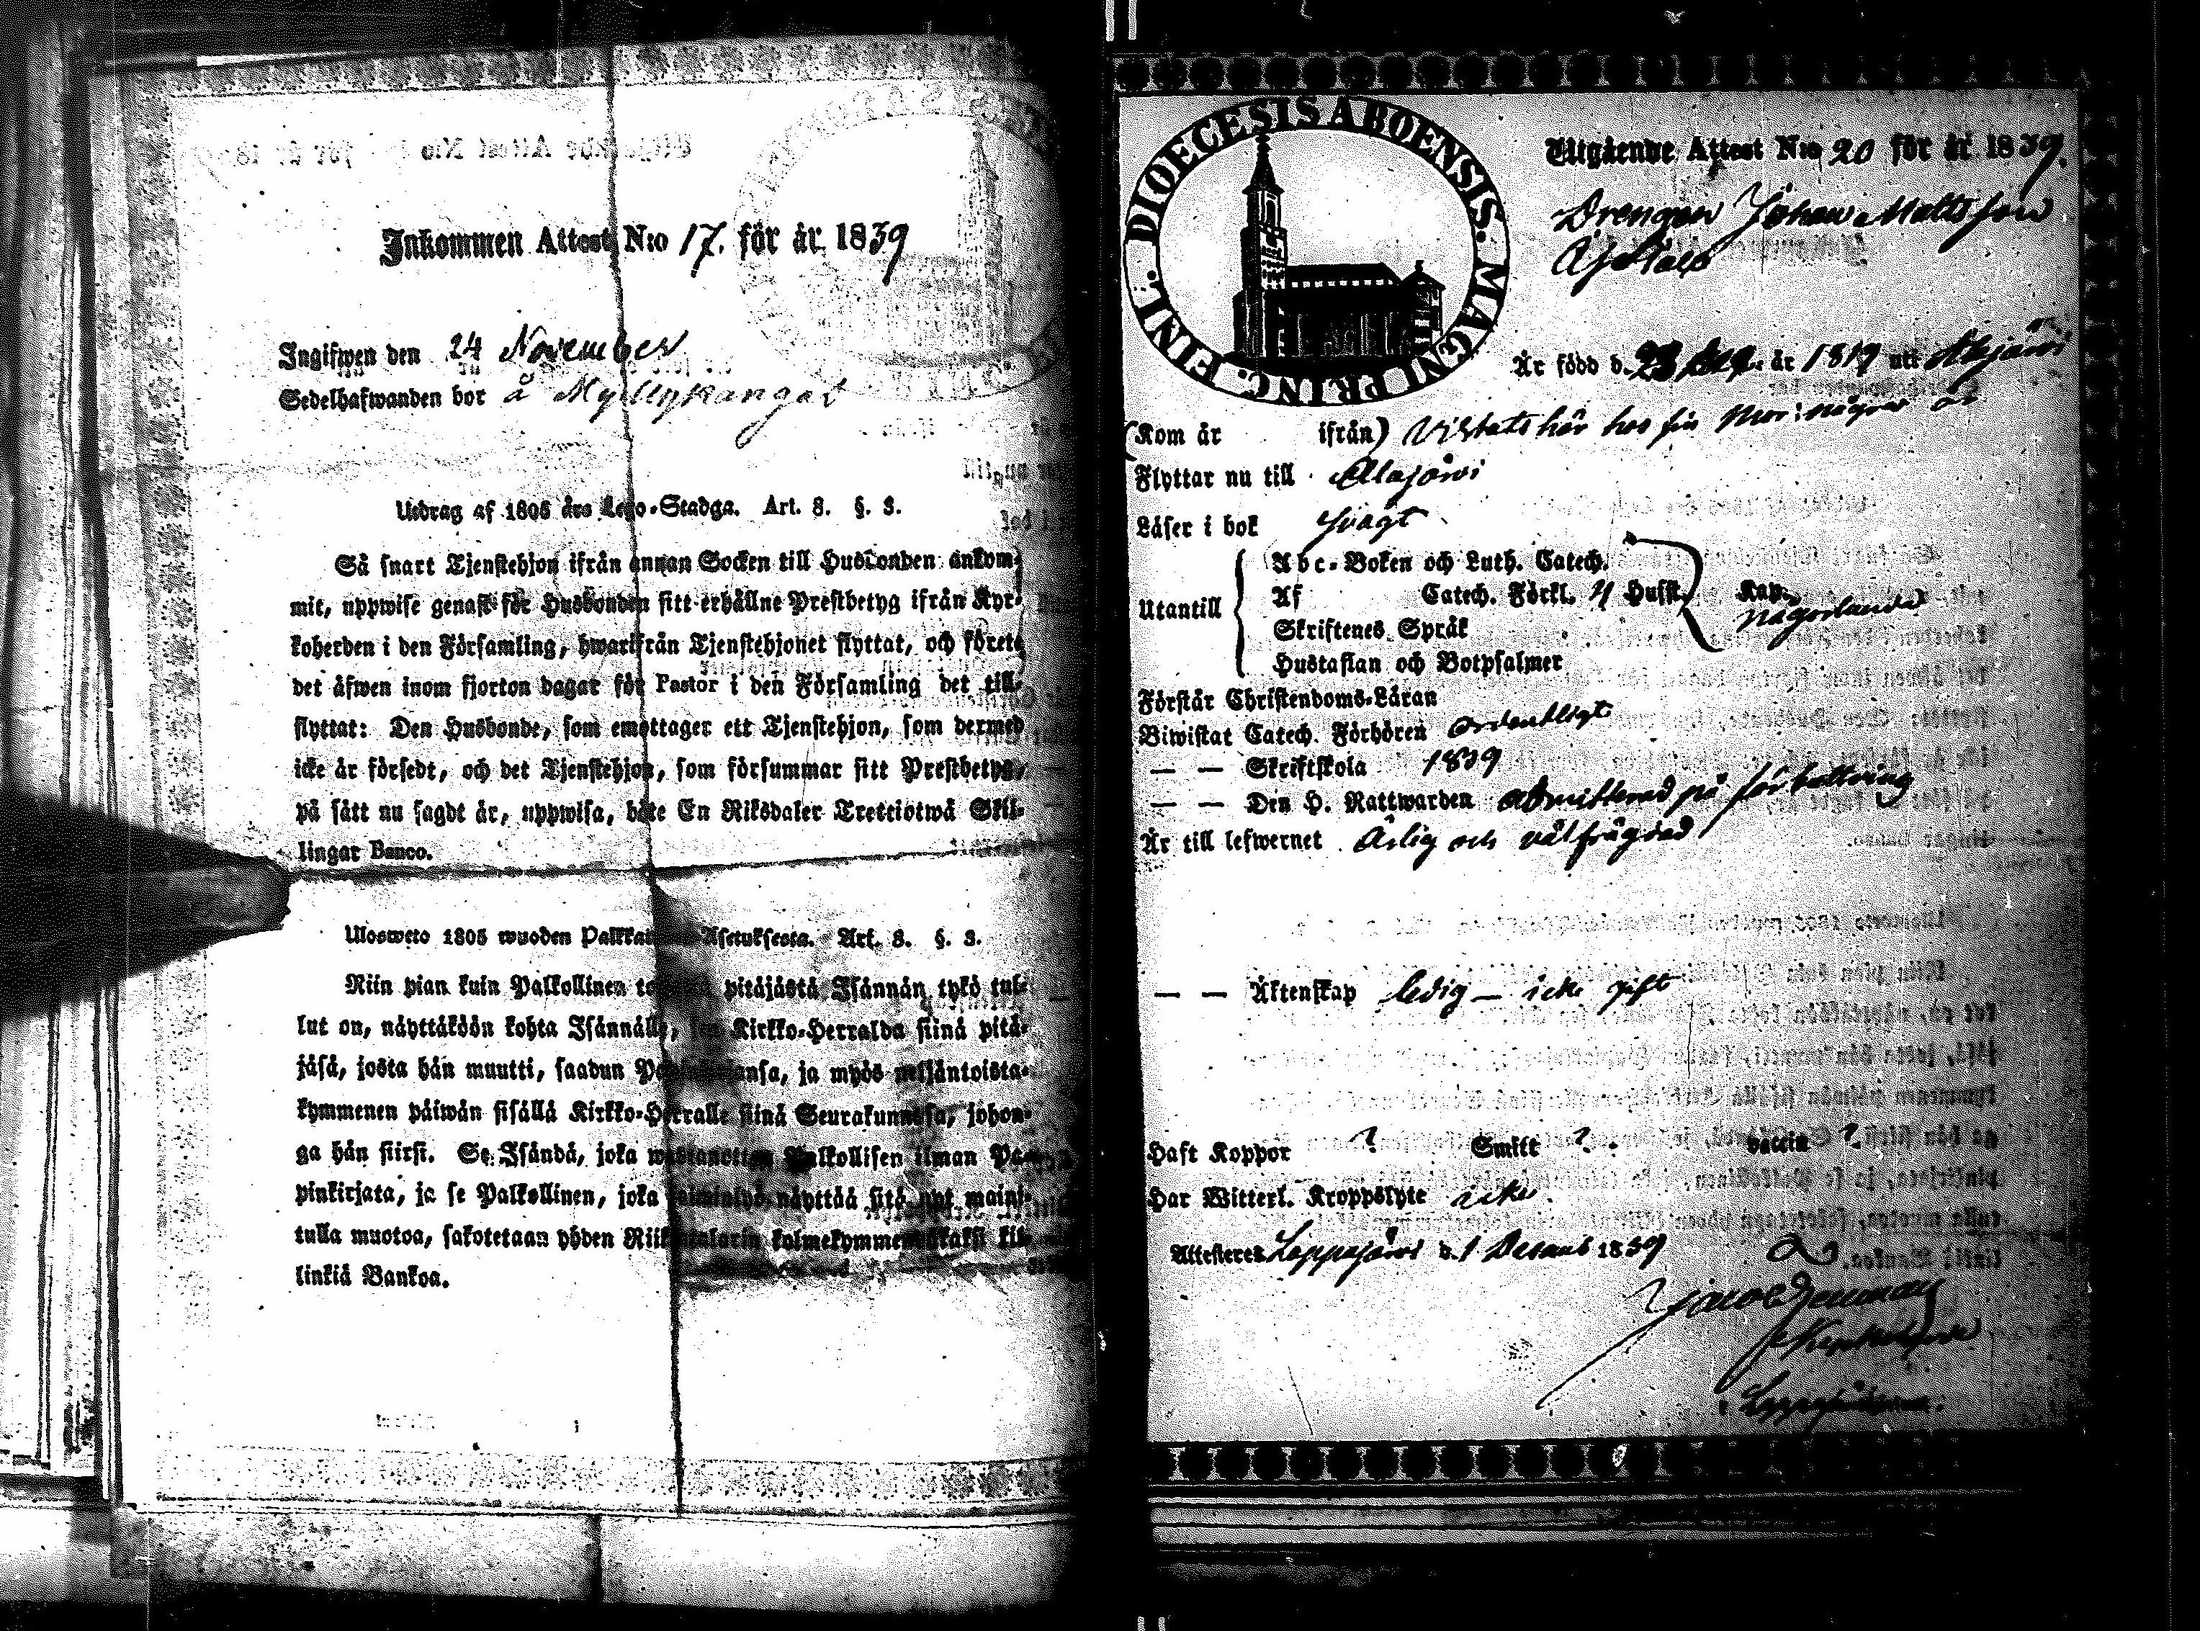 Inkommen Attest N:o 17. för år 1839
Ingifwen den 24 November
Sedelhafwanden bor å Myllykangas
Utdrag af 1805 års Lego-Stadga. Art. 8. §. 3.
Så snart Tjenstehjon ifrån annan Socken till Husbonden ankom-
mit, uppwise genast för Husbonden sitt erhållne Prestbetyg ifrån Kyr-
koherden i den Församling, hwarifrån Tjenstehjonet flyttat, och förete
det äfwen inom fjorton dagar för Pastor i den Församling det till-
flyttat: Den Husbonde, som emottager ett Tjenstehjon, som dermed
icke är försedt, och det Tjenstehjon, som försummar sitt Prestbetyg,
på sätt nu sagdt är, uppwisa, böte En Riksdaler Trettiotwå Skil-
lingar Banco.
Ulosweto 1805 wuoden Palkka Asetuksesta. Art. 8. §. 3.
Niin pian kuin Palkollinen toisesta pitäjästä Isännän tykö tul-
lut on, näyttäköön kohta Isännälle, sen Kirkko-Herralda siinä pitä-
jäsä, josta hän muutti, saadun Papinkirjansa, ja myös neljäntoista-
kymmenen päiwän sisällä Kirkko-Herralle siinä Seurakunnasa, johon-
ga hän siirsi. Se Isändä, joka wastanottaa Palkollisen ilman Pa-
pinkirjata, ja se Palkollinen, joka näyttää sitä nyt maini-
tulla muotoa, sakotetaan yhden Riikintalarin kolmekymmentäkaksi kil-
linkiä Bankoa.
DIOECESIS ABOENSIS. MAGNI PRINC. FINL.
Utgående Attest N:o 20 för år 1839.
Drengen Johan Mattsson
Är född d. 23 år 1819 uti
(Kom år ifrån) Vistats här hos sin Mor: några år
Flyttar nu till Alajärvi
Läser i bok svagt
Utantill
Abc-Boken och Luth. Catech.
Af Catech. Förkl. Husst. Kap. någorlunda
Skriftenes Språk
Hustaflan och Botpsalmer
Förstår Christendoms-Läran
Biwistat Catech. Förhören ordentligt
— — Skriftskola 1839
— — Den H. Nattwarden admitterad på förbättring
Är till lefwernet Ärlig och välfrägdad
— — Äktenskap ledig — icke gift
Haft Koppor ? Smitt ? vaccin ?
Har Witterl. Kroppslyte icke.
Attesteres Lappajärvi d. 1 1839